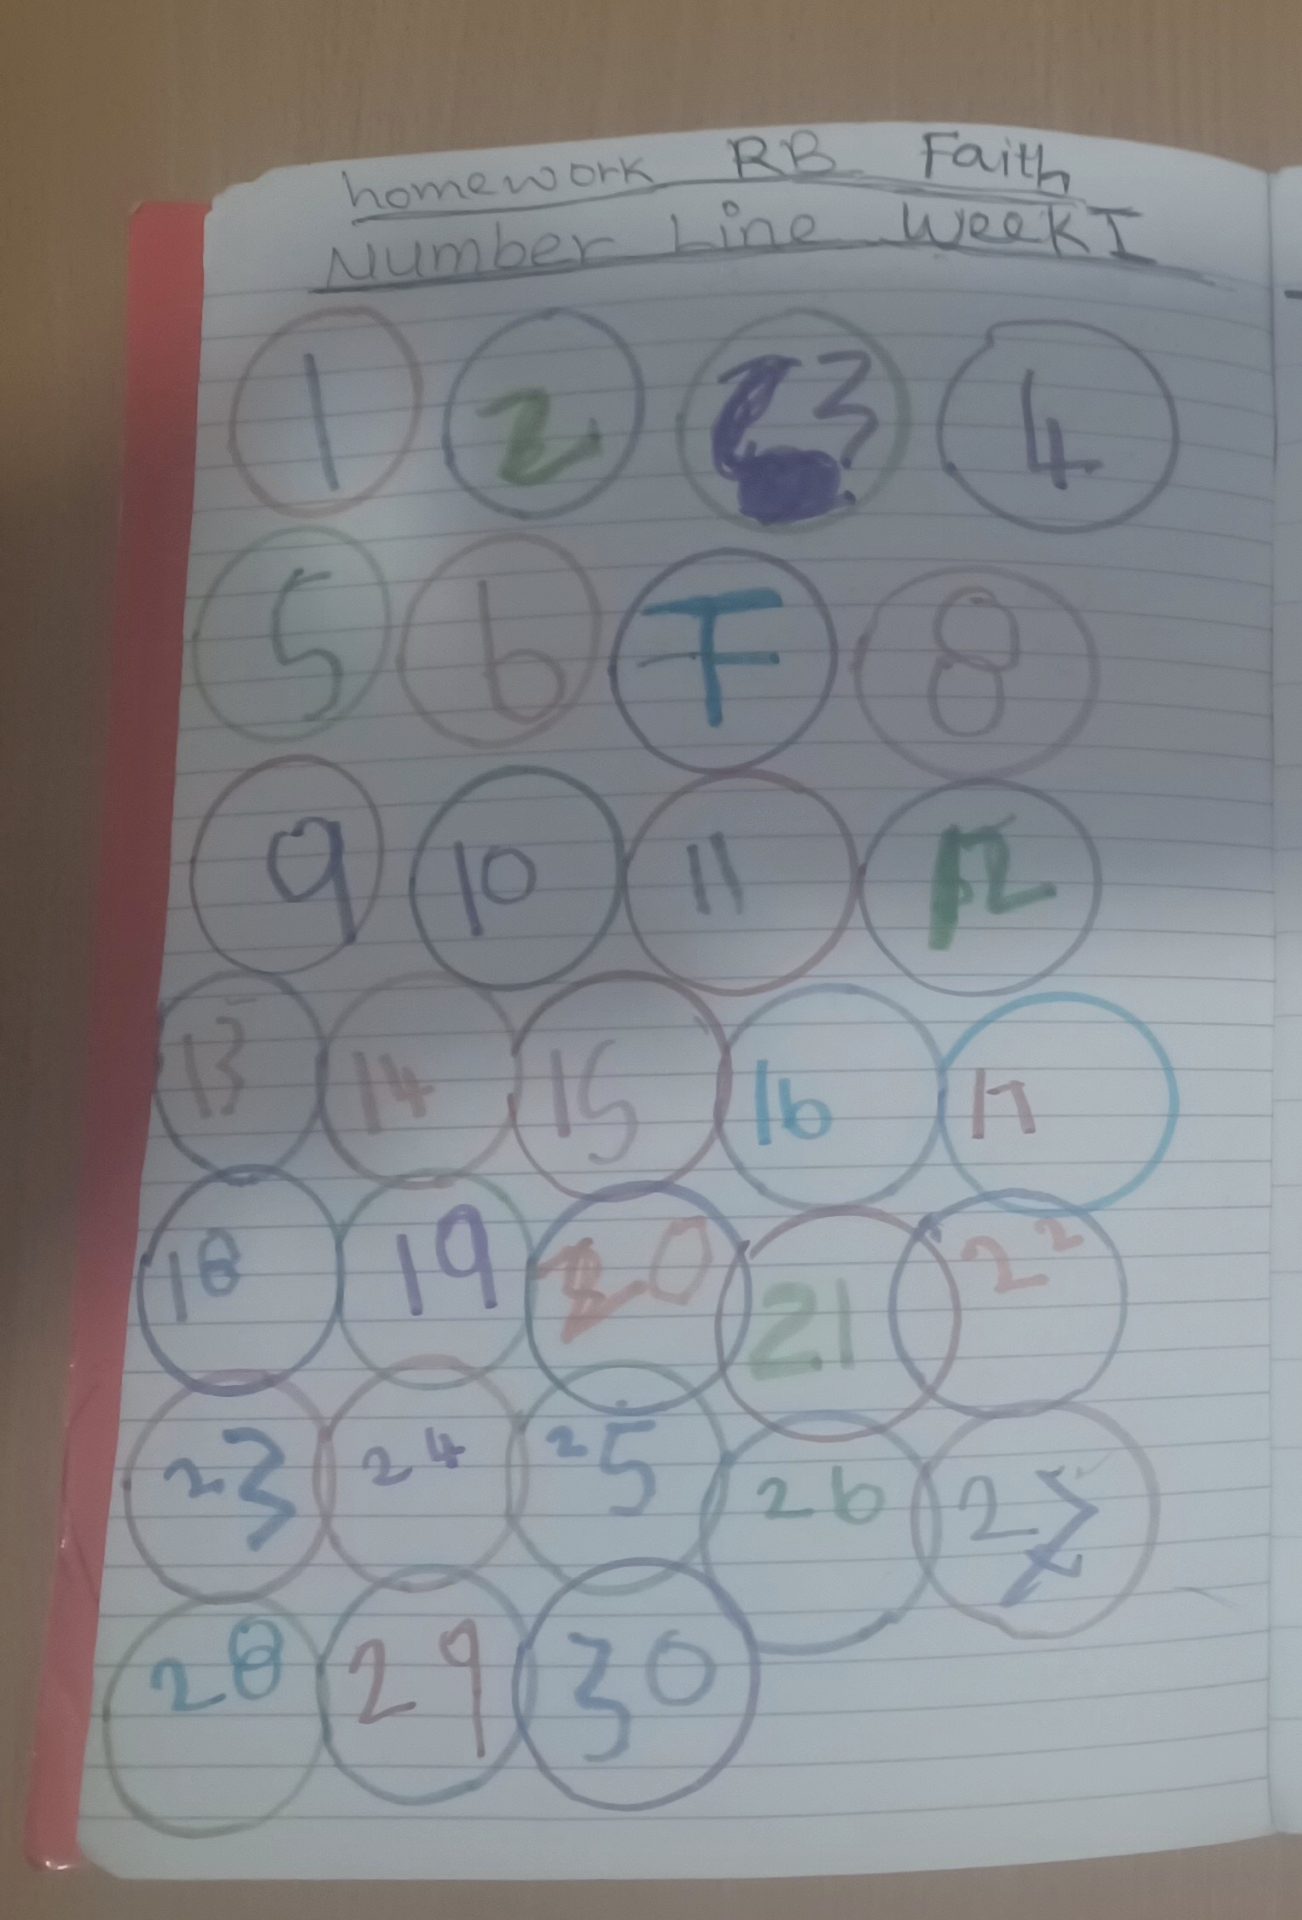 homework RB Faith
Number Line Week I
1 2 3 4
5 6 7 8
9 10 11 12
13 14 15 16 17
18 19 20 21 22
23 24 25 26 27
28 29 30